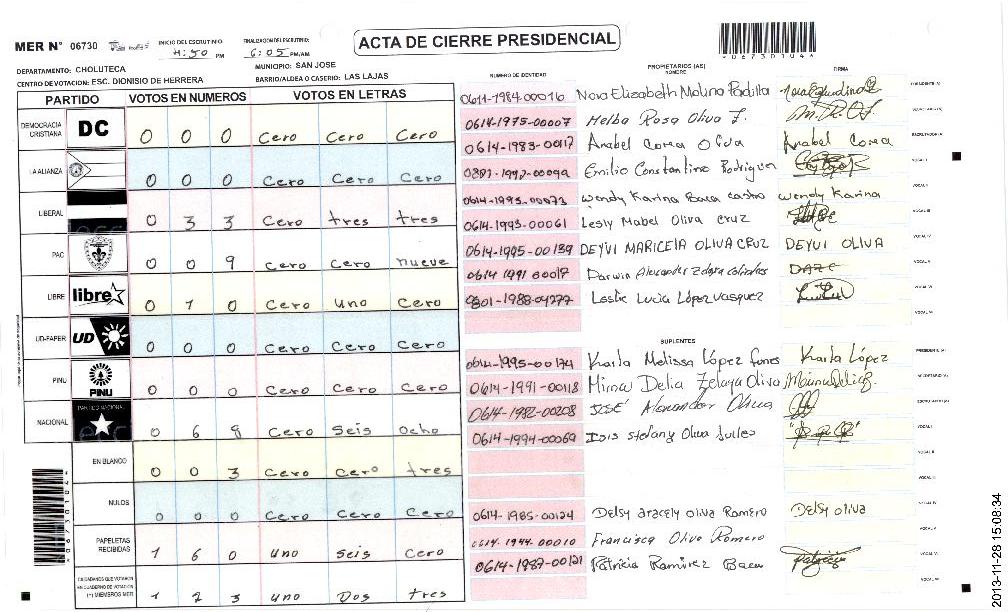 MER N° 06730
INICIO DEL ESCRUTINIO
4:50 PM
FINALIZACION DEL ESCRUTINIO
6:05 PM/AM
ACTA DE CIERRE PRESIDENCIAL
*067301044*
DEPARTAMENTO: CHOLUTECA
MUNICIPIO: SAN JOSE
CENTRO DE VOTACION: ESC. DIONISIO DE HERRERA
BARRIO/ALDEA O CASERIO: LAS LAJAS
PARTIDO VOTOS EN NUMEROS VOTOS EN LETRAS
DEMOCRACIA CRISTIANA DC 0 0 0 Cero Cero Cero
LA ALIANZA 0 0 0 Cero Cero Cero
LIBERAL 0 3 3 Cero tres tres
PAC 0 0 9 Cero Cero nueve
LIBRE libre 0 1 0 Cero uno Cero
UD-FAPER UD 0 0 0 Cero Cero Cero
PINU PINU 0 0 0 Cero Cero Cero
NACIONAL PARTIDO NACIONAL 0 6 8 Cero Seis Ocho
EN BLANCO 0 0 3 Cero Cero tres
NULOS 0 0 0 Cero Cero Cero
PAPELETAS RECIBIDAS 1 6 0 uno seis Cero
CIUDADANOS QUE VOTARON EN CUADERNO DE VOTACION (+) MIEMBROS MER 1 2 3 uno Dos tres
NUMERO DE IDENTIDAD PROPIETARIOS (AS) NOMBRE FIRMA
0611-1984-00016 Nora Elizabeth Molina Padilla PRESIDENTE (A)
0614-1975-00007 Melba Rosa Oliva F. SECRETARIO (A)
0614-1983-00117 Anabel Corea Oliva Anabel Corea ESCRUTADOR (A)
Emilio Constantino Rodriguez VOCAL I
0614-1993-00073 Wendy Karina Baca castro Wendy Karina VOCAL II
0614-1993-00061 Lesly Mabel Oliva Cruz VOCAL III
0614-1995-00139 DEYUI MARICELA OLIVA CRUZ DEYUI OLIVA VOCAL IV
0614 1991 00017 Darwin Alexander DAZC VOCAL V
0801-1988-04277 Leslie Lucia López vasquez VOCAL VI
SUPLENTES
0614-1995-00174 Karla Melissa López funes Karla López PRESIDENTE (A)
0614-1991-00118 Mirna Delia Zelaya Oliva SECRETARIO (A)
0614-1982-00208 JOSÉ Alexander Oliva ESCRUTADOR (A)
0614-1994-00069 Isis stefany Oliva VOCAL I
VOCAL II
VOCAL III
0614-1985-00124 Delsy aracely oliva Romero Delsy oliva VOCAL IV
0614-1944-00010 Francisca Oliva Romero VOCAL V
0614-1987-00121 Patricia Ramirez Baca VOCAL VI
*067301044*
2013-11-28 15:08:34